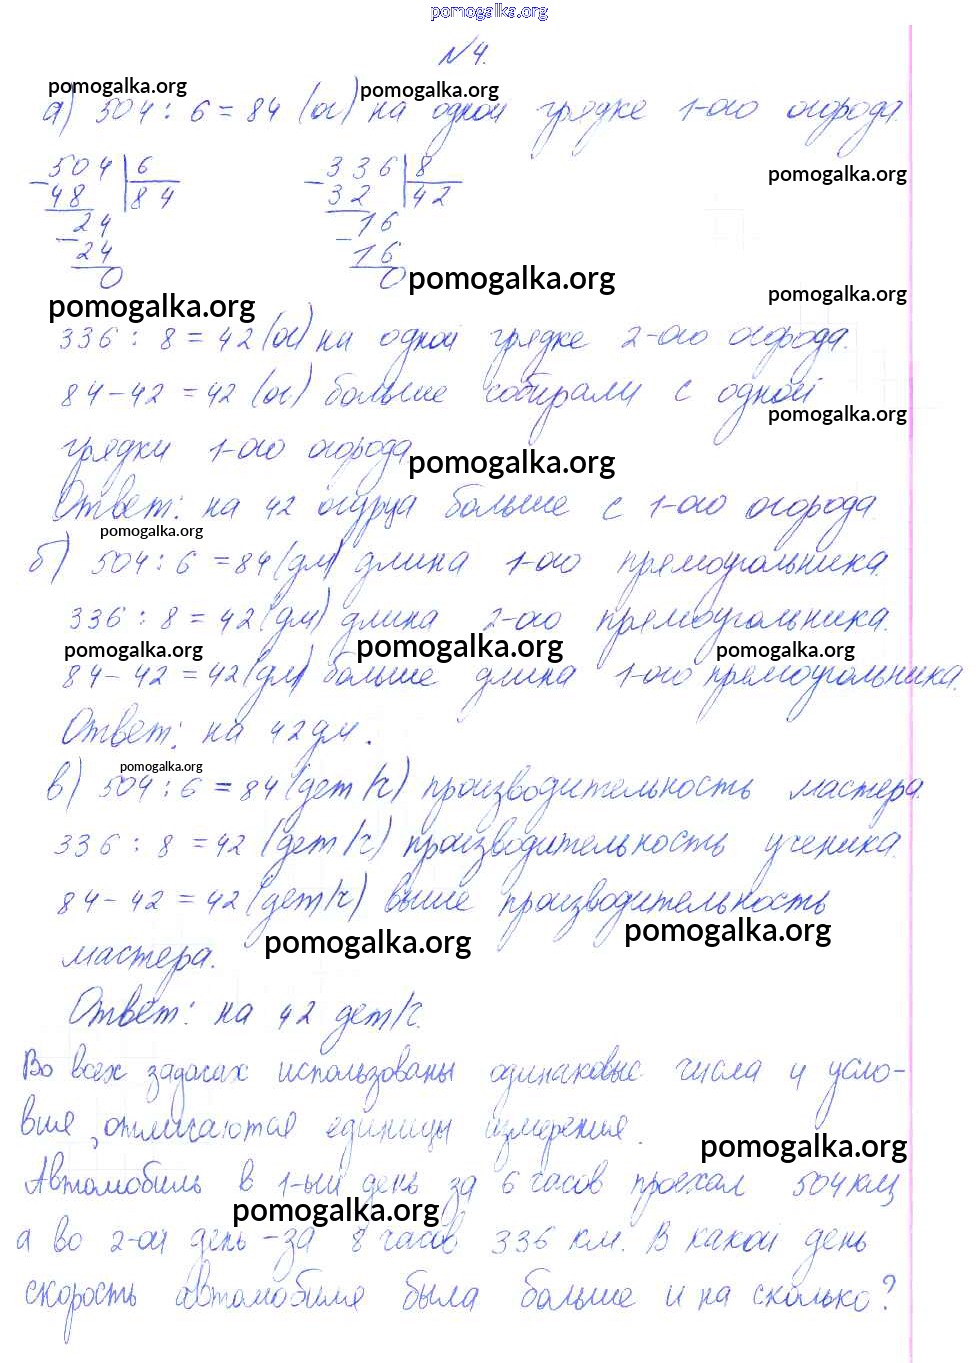 pomogalka.org
№4.
pomogalka.org pomogalka.org
а) 504 : 6 = 84 (ог) на одной грядке 1-ого огорода.
504 6 336 8
48 84 32 42
24 16
24 16
0 0
pomogalka.org
pomogalka.org
pomogalka.org
pomogalka.org
336 : 8 = 42 (ог) на одной грядке 2-ого огорода.
84 - 42 = 42 (ог) больше собирали с одной
pomogalka.org
грядки 1-ого огорода
pomogalka.org
Ответ: на 42 огурца больше с 1-ого огорода.
pomogalka.org
б) 504 : 6 = 84 (дм) длина 1-ого прямоугольника.
336 : 8 = 42 (дм) длина 2-ого прямоугольника.
pomogalka.org pomogalka.org pomogalka.org
84 - 42 = 42 (дм) больше длина 1-ого прямоугольника.
Ответ: на 42 дм.
pomogalka.org
в) 504 : 6 = 84 (дет/ч) производительность мастера.
336 : 8 = 42 (дет/ч) производительность ученика.
84 - 42 = 42 (дет/ч) выше производительность
pomogalka.org pomogalka.org
мастера.
Ответ: на 42 дет/ч.
Во всех задачах использованы одинаковые числа и усло-
вия, отличаются единицы измерения.
pomogalka.org
Автомобиль в 1-ый день за 6 часов проехал 504 км,
pomogalka.org
а во 2-ой день - за 8 часов 336 км. В какой день
скорость автомобиля была больше и на сколько?